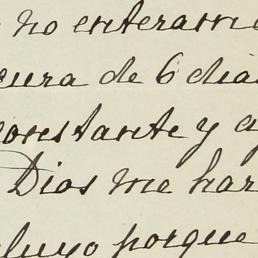 no enterarme
cura de 6 dias
constante y a
Dios me har
cluyo porque